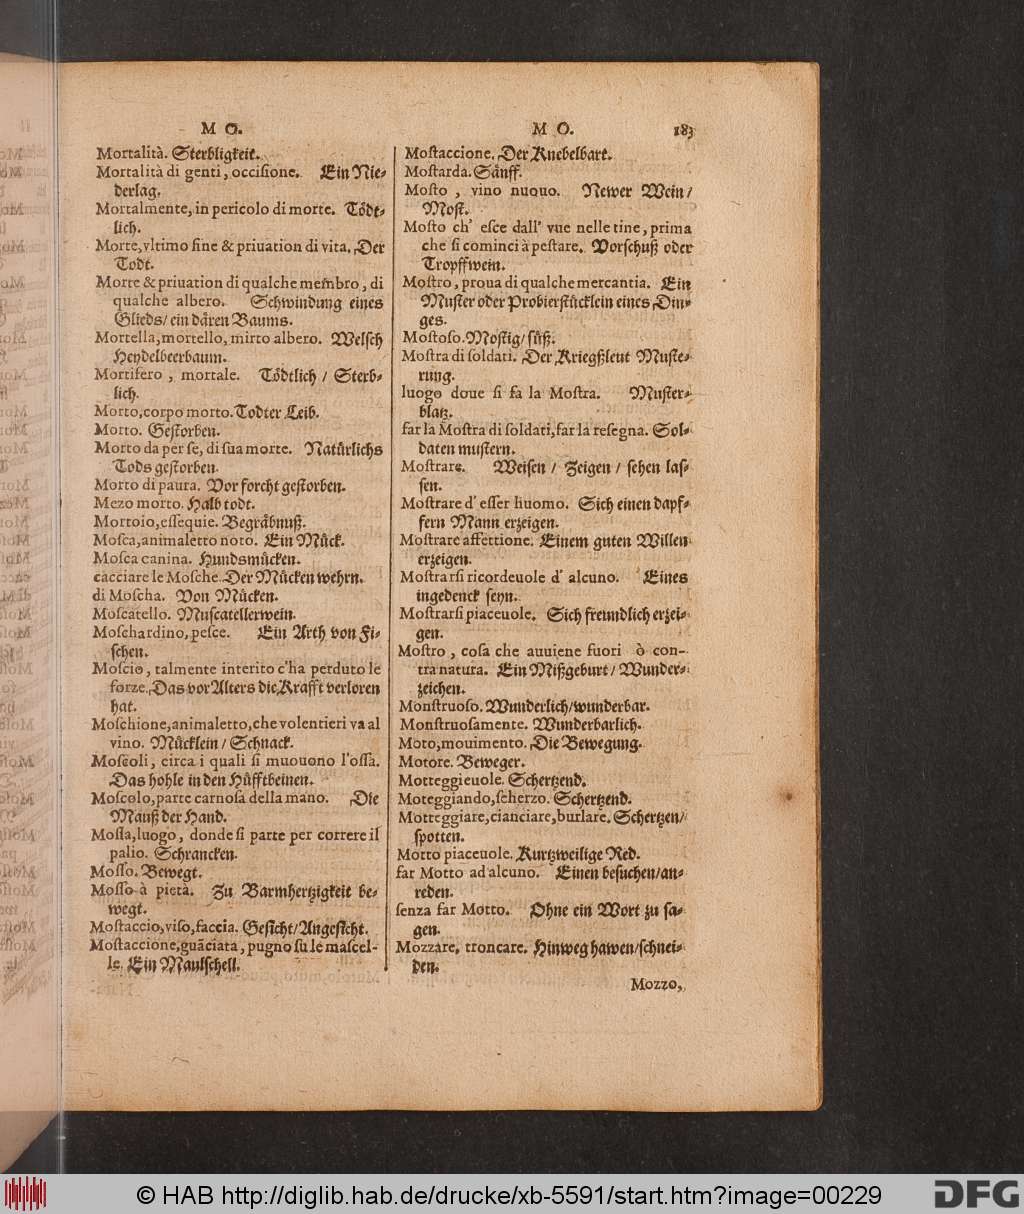 M O.
Mortalità. Sterbligkeit.
Mortalità di genti, occisione. Ein Nie-
derlag.
Mortalmente, in pericolo di morte. Tödt-
lich.
Morte, vltimo fine & priuation di vita. Der
Todt.
Morte & priuation di qualche membro, di
qualche albero. Schwindung eines
Glieds/ ein dären Baums.
Mortella, mortello, mirto albero. Welsch
Heydelbeerbaum.
Mortifero, mortale. Tödtlich / Sterb-
lich.
Morto, corpo morto. Todter Leib.
Morto. Gestorben.
Morto da per se, di sua morte. Natürlichs
Tods gestorben.
Morto di paura. Vor forcht gestorben.
Mezo morto. Halb todt.
Mortoio, essequie. Begräbnuß.
Mosca, animaletto noto. Ein Mück.
Mosca canina. Hundsmücken.
cacciare le Mosche. Der Mücken wehrn.
di Moscha. Von Mücken.
Moscatello. Muscatellerwein.
Moschardino, pesce. Ein Arth von Fi-
schen.
Moscio, talmente interito c'ha perduto le
forze. Das vor Alters die Krafft verloren
hat.
Moschione, animaletto, che volentieri va al
vino. Mücklein / Schnack.
Moscoli, circa i quali si muouono l'ossa.
Das hohle in den Hüfftbeinen.
Moscolo, parte carnosa della mano. Die
Mauß der Hand.
Mossa, luogo, donde si parte per correre il
palio. Schrancken.
Mosso. Bewegt.
Mosso à pietà. Zu Barmhertzigkeit be-
wegt.
Mostaccio, viso, faccia. Gesicht/ Angesicht.
Mostaccione, guãciata, pugno su le mascel-
le. Ein Maulschell.
M O. 183
Mostaccione. Der Knebelbart.
Mostarda. Sänff.
Mosto, vino nuouo. Newer Wein/
Most.
Mosto ch' esce dall' vue nelle tine, prima
che si cominci à pestare. Vorschuß oder
Tropffwein.
Mostro, proua di qualche mercantia. Ein
Muster oder Probierstücklein eines Din-
ges.
Mostoso. Mostig/ süß.
Mostra di soldati. Der Kriegßleut Muste-
rung.
luogo doue si fa la Mostra. Muster-
blatz.
far la Mostra di soldati, far la resegna. Sol-
daten mustern.
Mostrare. Weisen / Zeigen / sehen las-
sen.
Mostrare d' esser huomo. Sich einen dapf-
fern Mann erzeigen.
Mostrare affettione. Einem guten Willen
erzeigen.
Mostrarsi ricordeuole d' alcuno. Eines
ingedenck seyn.
Mostrarsi piaceuole. Sich freundlich erzei-
gen.
Mostro, cosa che auuiene fuori ò con-
tra natura. Ein Mißgeburt/ Wunder-
zeichen.
Monstruoso. Wunderlich/wunderbar.
Monstruosamente. Wunderbarlich.
Moto, mouimento. Die Bewegung.
Motore. Beweger.
Motteggieuole. Schertzend.
Moteggiando, scherzo. Schertzend.
Motteggiare, cianciare, burlare. Schertzen/
spotten.
Motto piaceuole. Kurtzweilige Red.
far Motto ad alcuno. Einen besuchen/an-
reden.
senza far Motto. Ohne ein Wort zu sa-
gen.
Mozzare, troncare. Hinweg hawen/schnei-
den.
Mozzo,
© HAB http://diglib.hab.de/drucke/xb-5591/start.htm?image=00229
DFG